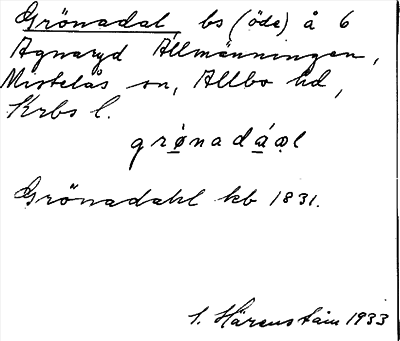 Grönadal, bs (öde) å 6
Agnaryd Allmänningen,
Mistelås sn, Allbo hd,
Krbs l.
grö̀nadáəl
Grönadahl kb 1831.
S. Härenstam 1933